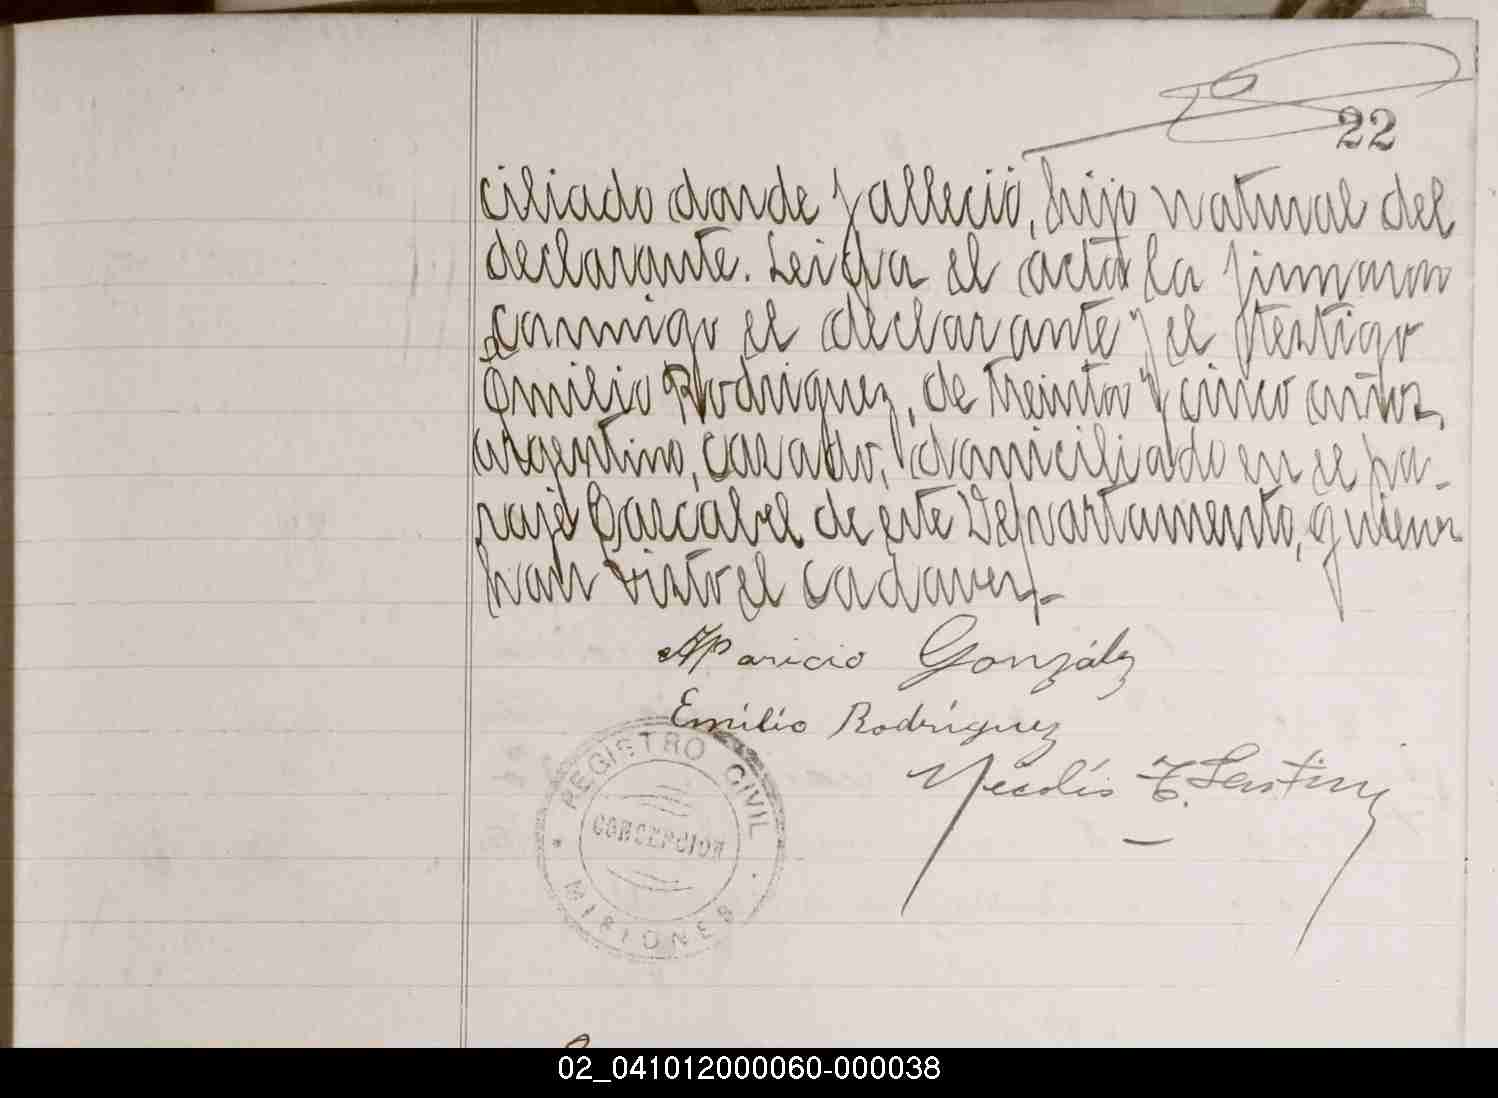 22
ciliado donde falleció, hijo natural del
declarante. Leida el acta la firmaron
conmigo el declarante y el testigo
Emilio Rodriguez, de treinta y cinco años,
argentino, casado, domiciliado en el pa-
raje Cascabel de este Departamento, quienes
han visto el cadaver.-
Aparicio González
Emilio Rodríguez
REGISTRO CIVIL
CONCEPCION
MISIONES
02_041012000060-000038